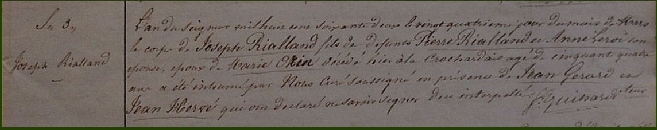 S. 3.
Joseph Rialland
L'an du seigneur mil huit cent soixante deux le vingt quatrieme jour du mois de Mars
le corps de Joseph Rialland fils de defunts Pierre Rialland et Anne Leroi son
epouse, epoux de Marie décédé hier à la agé de cinquant quatre
ans a été inhumé par Nous Curé soussigné en présence de Jean Gerard et
Jean Hervé qui ont declaré ne savoir signer de ce interpellé